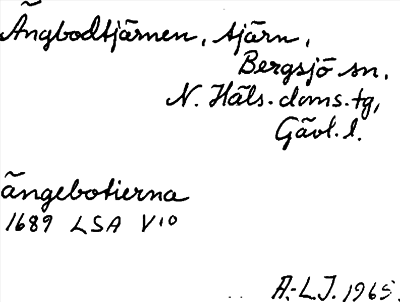 Ängbodtjärnen, tjärn,
Bergsjö sn,
N. Häls. doms. tg,
Gävl. l.
ängebotierna
1689 LSA V10
A.-L.J. 1965.